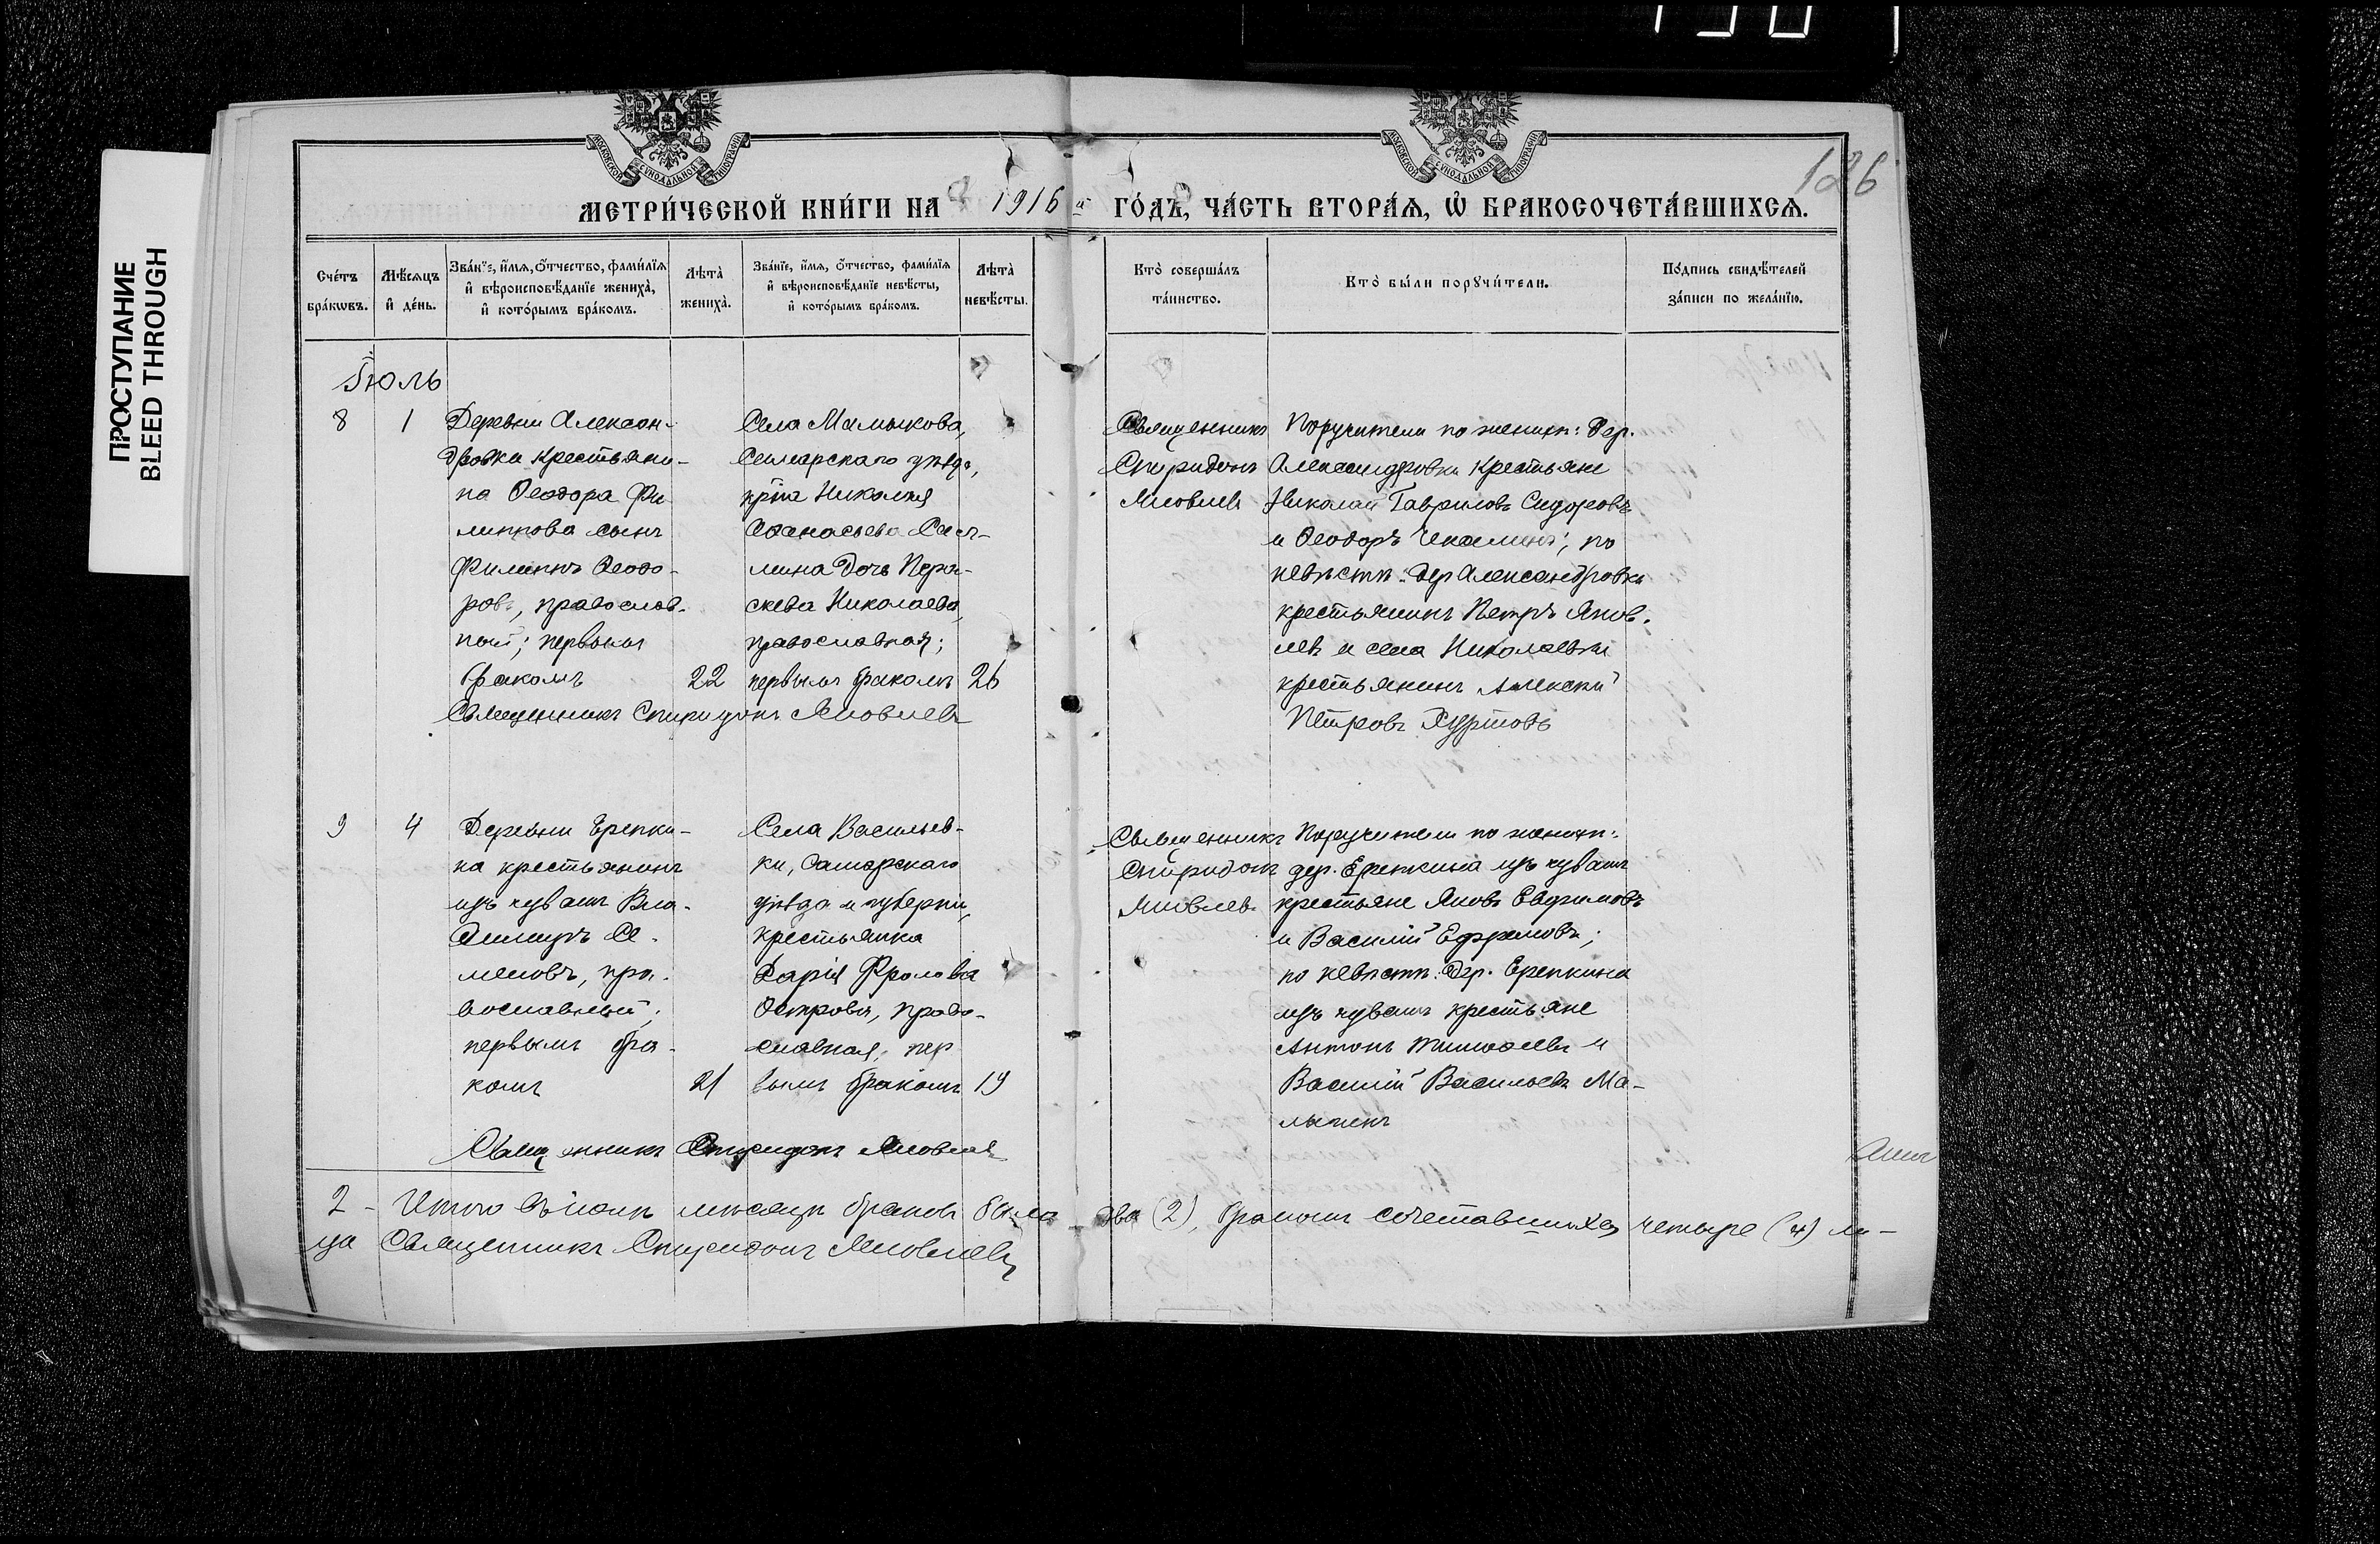 ПРОСТУПАНИЕ
BLEED THROUGH
МОСКОВСКОЙ СѴНОДАЛЬНОЙ ТИПОГРАФІИ
МОСКОВСКОЙ СѴНОДАЛЬНОЙ ТИПОГРАФІИ
126
МЕТРИ́ЧЕСКОЙ КНИ́ГИ НА 1916 й ГО́ДЪ, ЧА́СТЬ ВТОРА́Ѧ, Ѡ҆ БРАКОСОЧЕТА́ВШИХСѦ.
Сче́тъ
бра́кѡвъ.
Мѣ́сяцъ
и҆ де́нь.
Зва́нїе, и҆́мѧ, ѻ҆́тчество, фами́лїѧ
и҆ вѣроисповѣ́данїе жениха̀,
и҆ кото́рымъ бра́комъ.
Лѣта̀
жениха̀.
Зва́нїе, и҆́мѧ, ѻ҆́тчество, фами́лїѧ
и҆ вѣроисповѣ́данїе невѣ́сты,
и҆ кото́рымъ бра́комъ.
Лѣта̀
невѣ́сты.
Кто̀ соверша́лъ
та́инство.
Кто̀ бы́ли порꙋчи́тели.
По́дпись свидѣ́телей
за́писи по жела́нїю.
Іюль
8
1
Деревни Алексан-
дровки крестьяни-
на Ѳеодора Фи
липпова сынъ
Филиппъ Ѳеодо-
ровъ, православ-
ный; первымъ
бракомъ
22
Села Мамыкова,
Самарскаго уѣзда,
кр-на Николая
Аѳанасьева
дочь Пара-
скева Николаева,
православная;
первымъ бракомъ
26
Священникъ Спиридонъ Яковлевъ
Священникъ
Спиридонъ
Яковлевъ
Поручители по женихѣ: дер.
Александровки крестьяне
Николай Гавриловъ Сидоровъ
и Ѳеодоръ Чекалинъ; по
невѣстѣ: дер Александровки
крестьянинъ Петръ Яков-
левъ и села Николаевки
крестьянинъ Алексѣй
Петровъ
9
4
Деревни Ерепки-
на крестьянинъ
изъ чувашъ Вла-
димиръ Се-
меновъ, пра-
вославный;
первымъ бра-
комъ
21
Села Васильев-
ки, Самарскаго
уѣзда и губерніи,
крестьянка
Дарія Фролова
Петрова, право-
славная; пер
вымъ бракомъ
19
Священникъ Спиридонъ Яковлевъ
Священникъ
Спиридонъ
Яковлевъ
Поручители по женихѣ:
дер. Ерепкина изъ чувашъ
крестьяне Яковъ Евфимовъ
и Василій Ефремовъ;
по невѣстѣ: дер. Ерепкина
изъ чувашъ крестьяне
Антонъ Тимофеевъ и
Василій Васильевъ Ма-
2 - Итого въ іюлѣ мѣсяцѣ браковъ было два (2), бракомъ сочетавшихся четыре (4) ли-
ца Священникъ Спиридонъ Яковлевъ